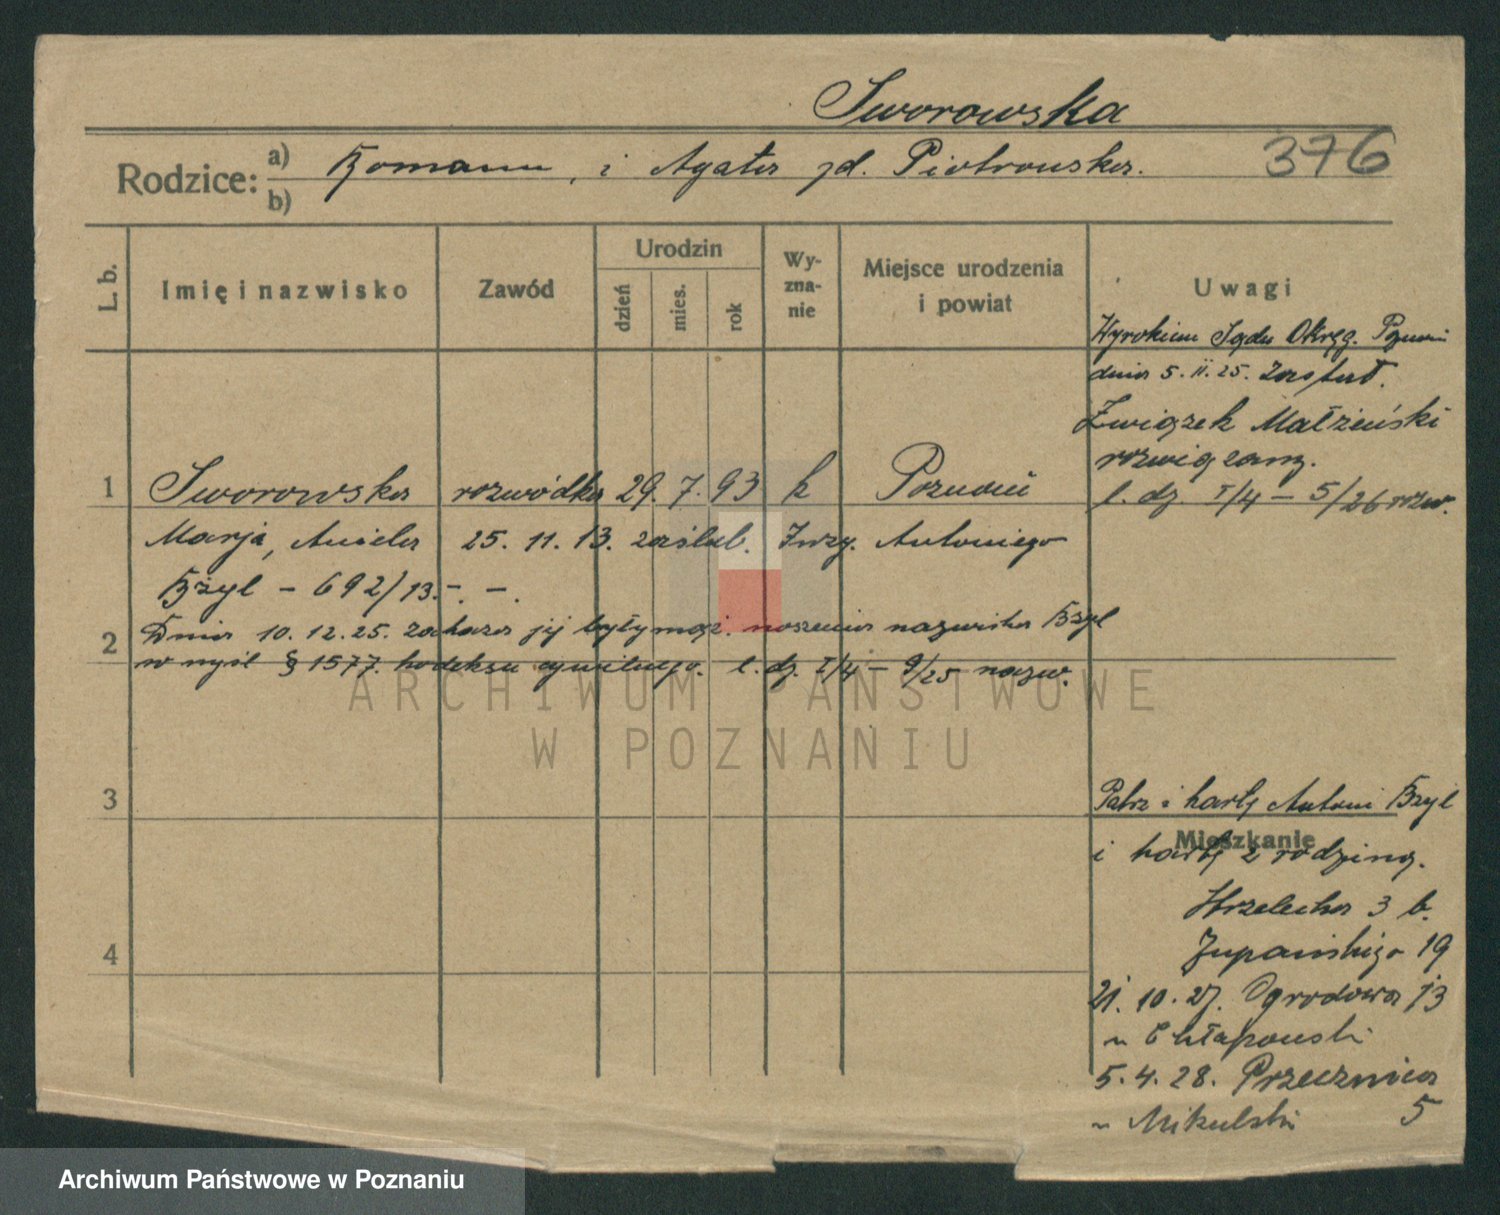 Sworowska
Rodzice: a) Roman, i Agata zd. Piotrowska. 376
b)
L. b.
Imię i nazwisko
Zawód
Urodzin
dzień
mies.
rok
Wy-
zna-
nie
Miejsce urodzenia
i powiat
Uwagi
Wyrokiem Sądu Okręg. Poznań
dnia 5. II. 25. został.
Związek Małżeński
rozwiązany.
l. dz. I/4 – 5/26 rozw.
1 Sworowska rozwódka 29. 7. 93 k Poznań
Marja, Aniela 25. 11. 13. zaślub. Antoniego
Bzyl – 692/13. – . – .
2 Dnia 10. 12. 25. zakazał jej były mąż. noszenia nazwiska Bzyl
w myśl § 1577. kodeksu cywilnego. l. dz. I/4 – 9/25 nazw.
ARCHIWUM PAŃSTWOWE
W POZNANIU
3
Patrz i kartę Antoni Bzyl
Mieszkanie
i kartę z rodziną.
Strzelecka 3 b.
Żupańskiego 19
4
21. 10. 27. Ogrodowa 13
u Chłapowski
5. 4. 28. Przecznica
u Mikulski 5
Archiwum Państwowe w Poznaniu